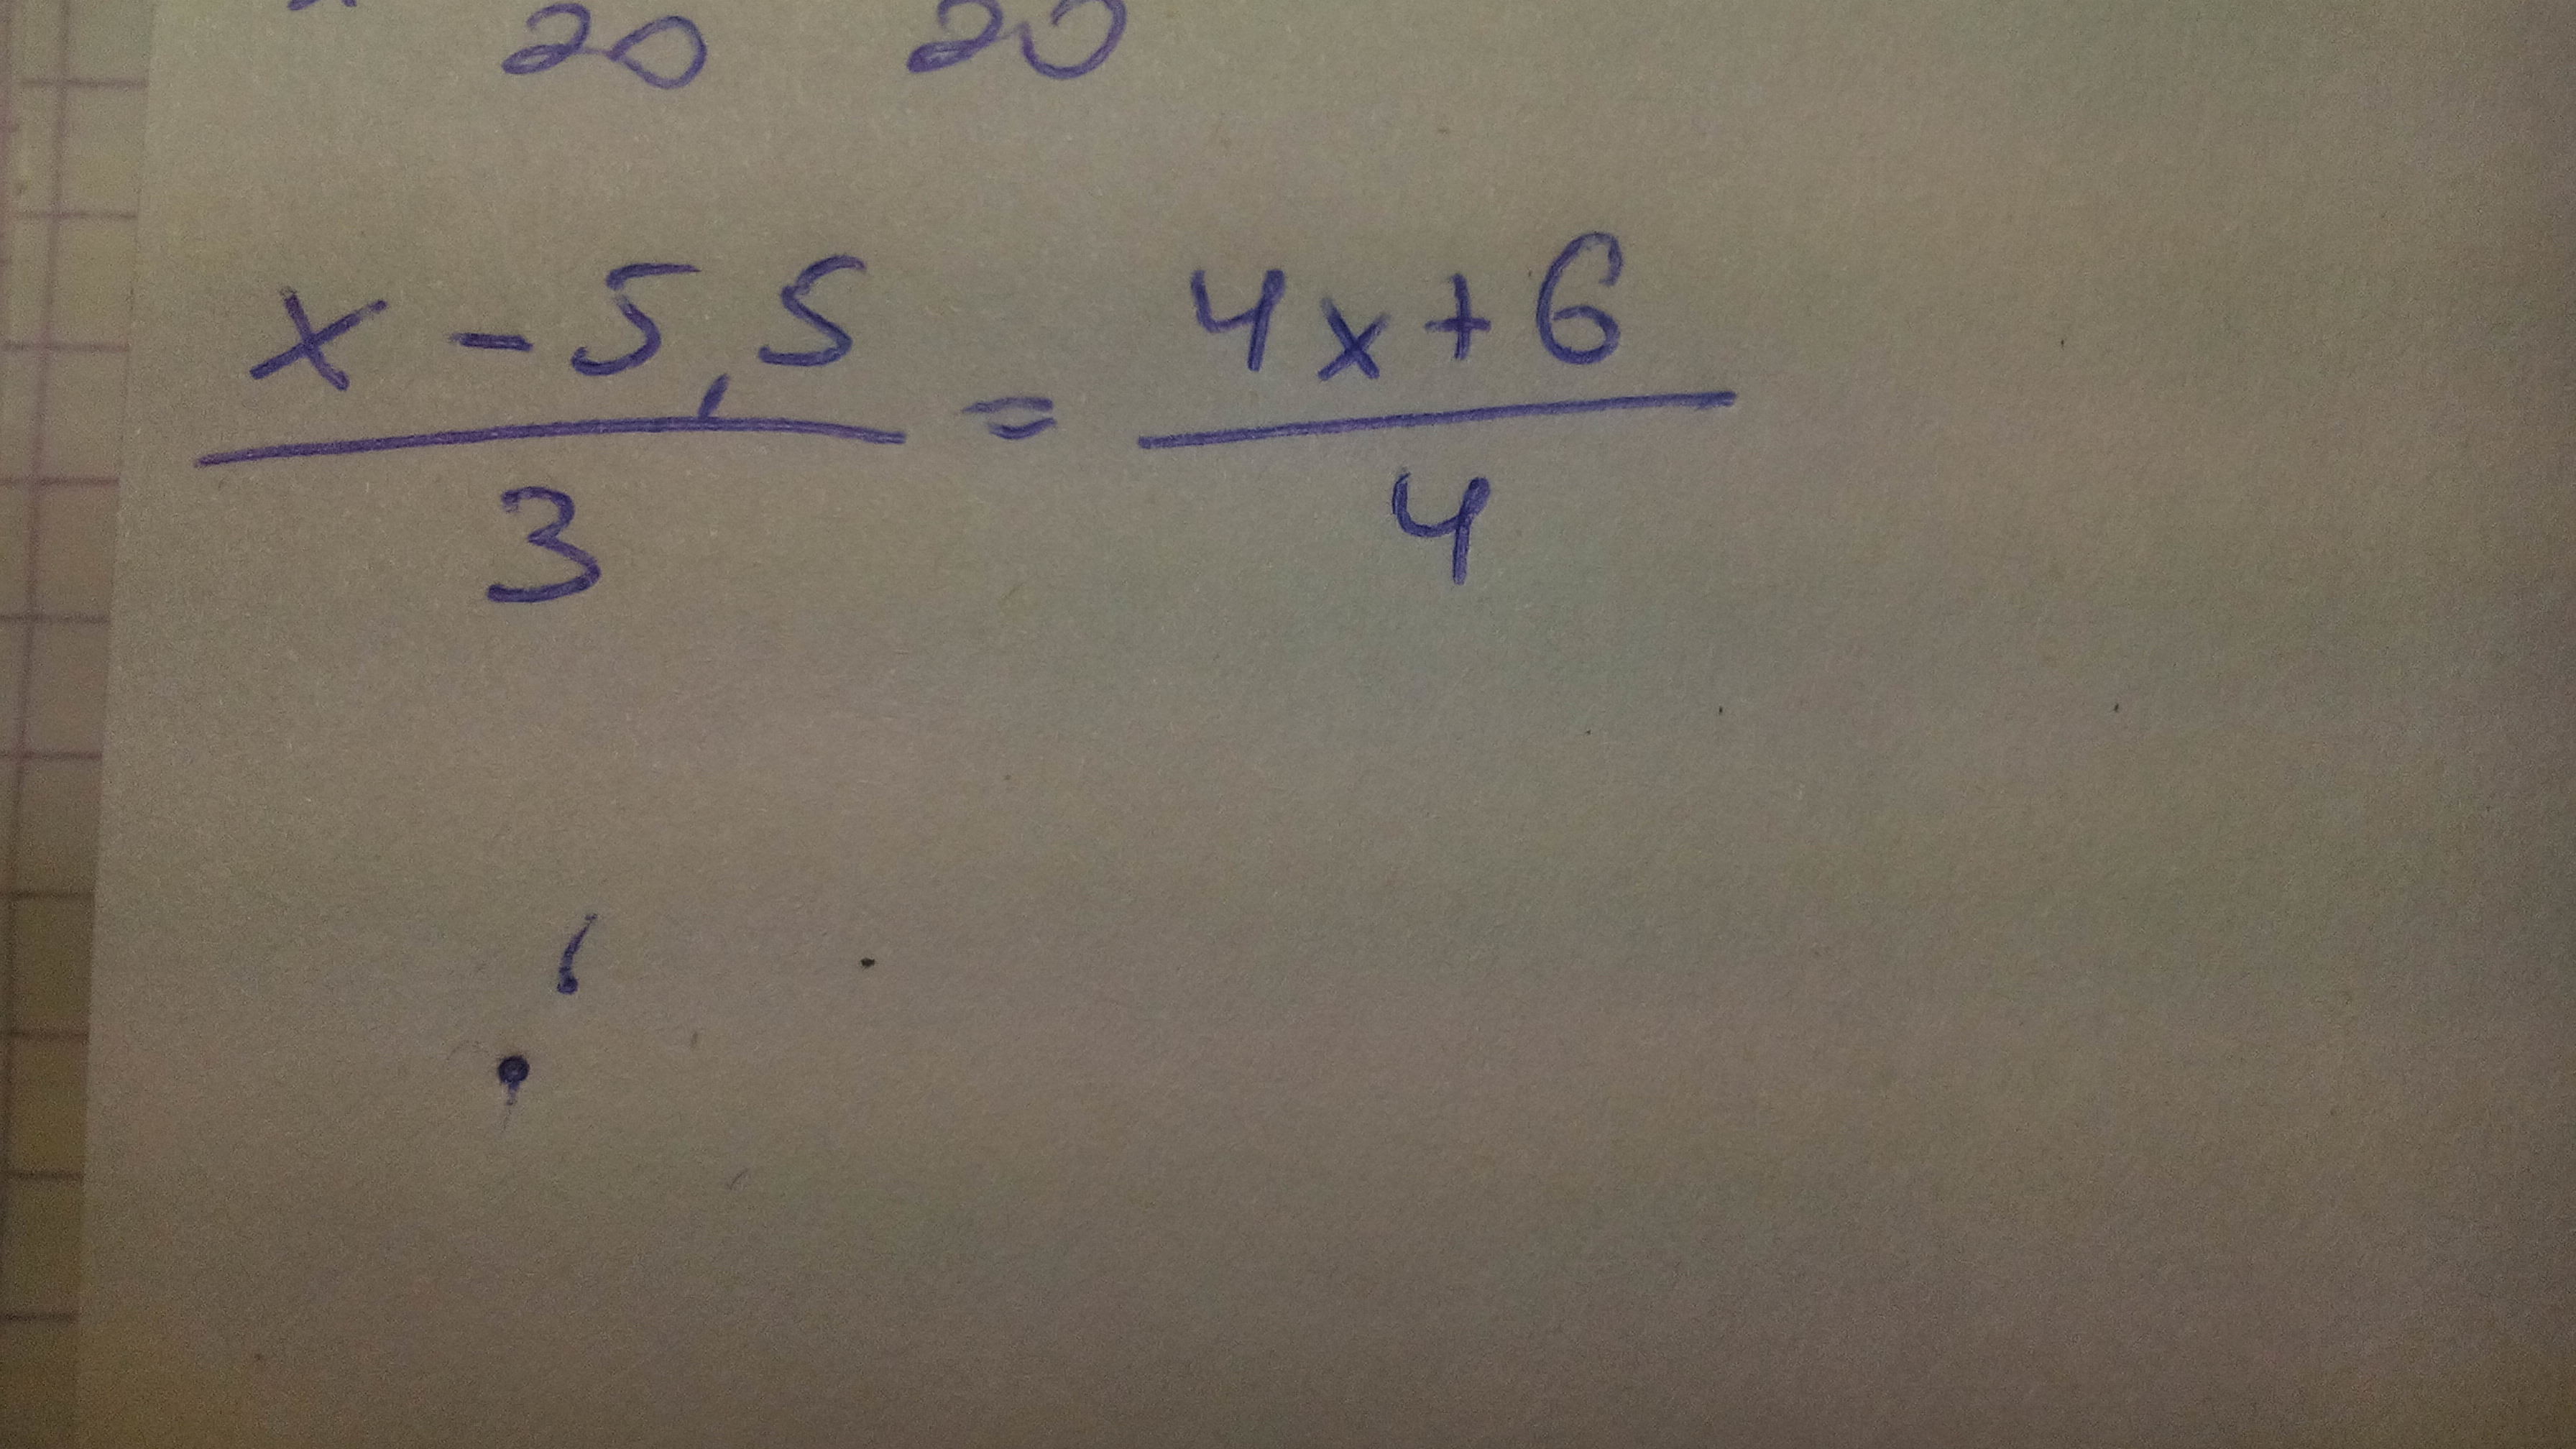 20 20
x - 5,5 = 4x + 6
3 4